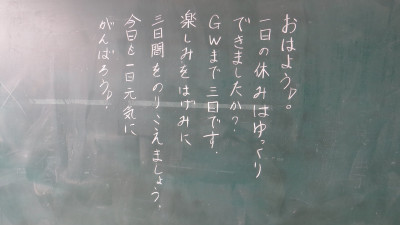 おはよう♪。
一日の休みはゆっくり
できましたか?
GWまで三日です.
楽しみをはげみに
三日間をのりこえましょう.
今日も一日元気に
がんばろう♪.